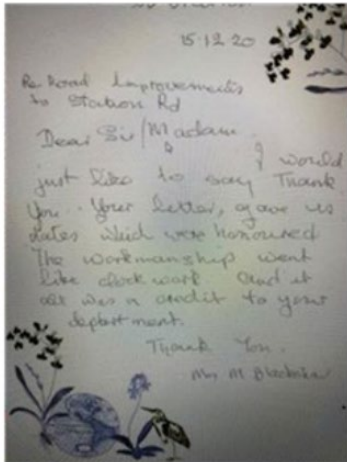 15.12.20
Re Road Improvements
to Station Rd
Dear Sir/Madam
I would
just like to say Thank
You. Your letter, gave us
dates which were honoured
The workmanship went
like clock work and it
all was a credit to your
department.
Thank You.
M